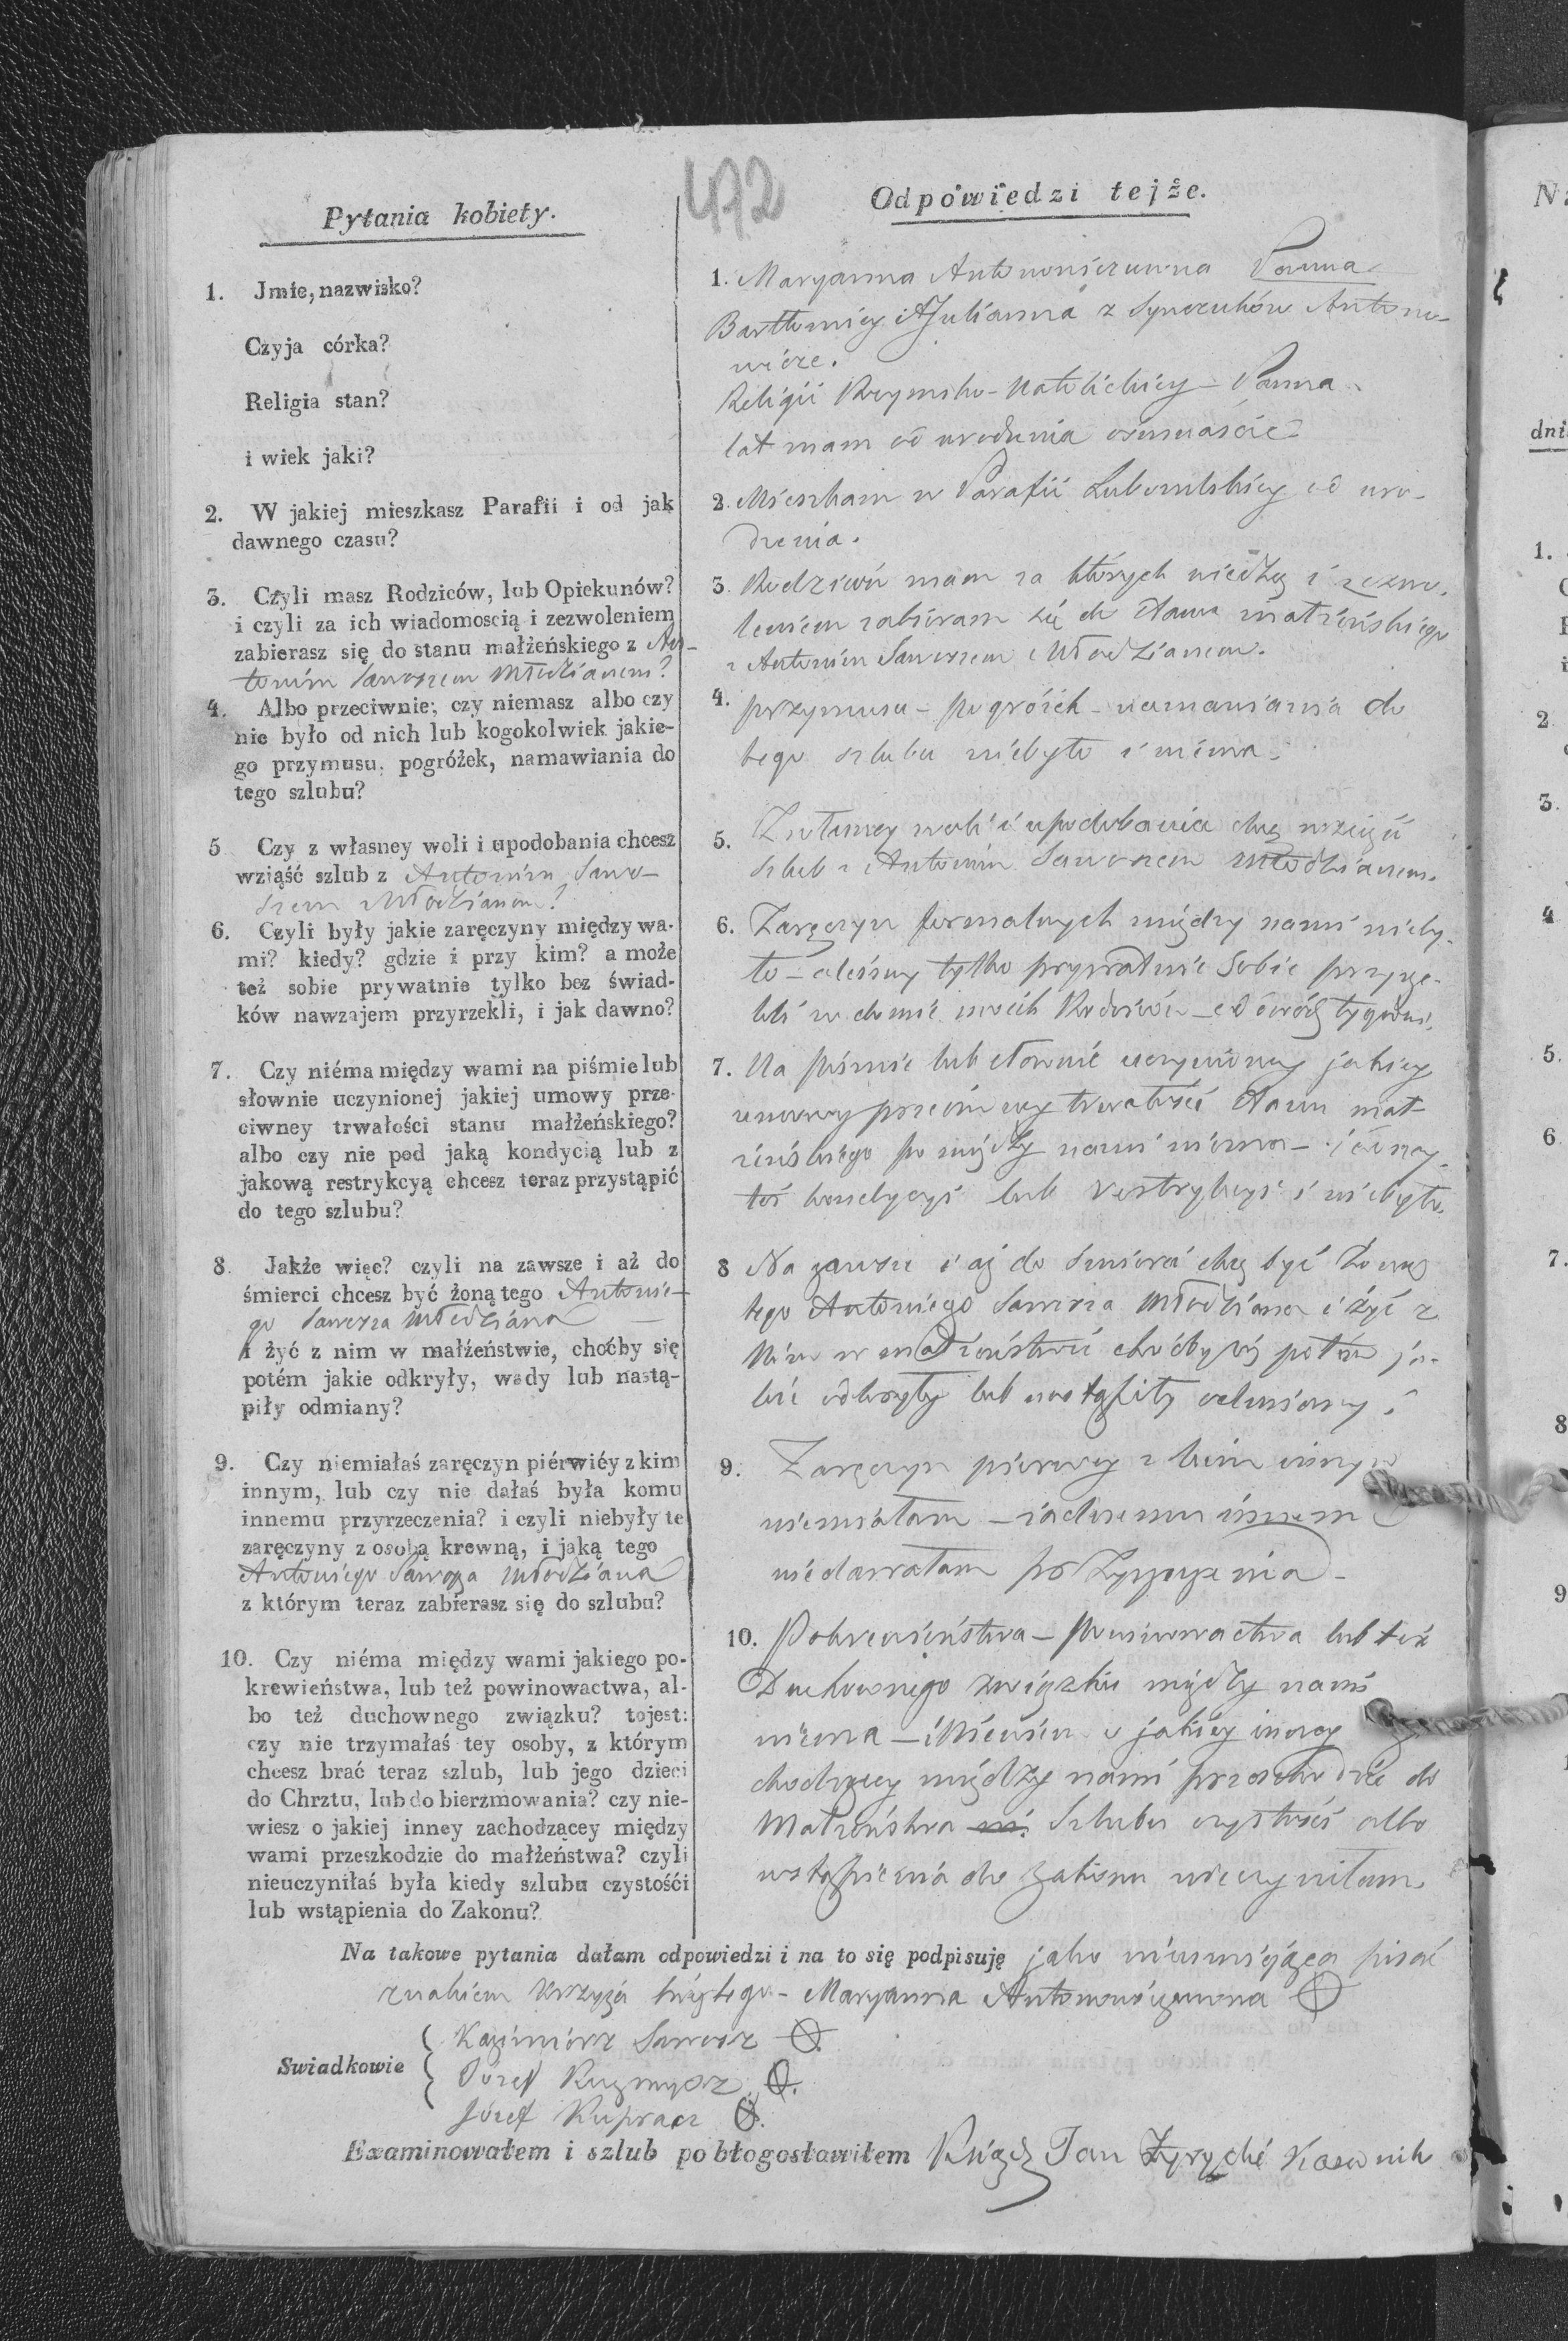 472
Pytania kobiety.
1. Jmie, nazwisko?
Czyja córka?
Religia stan?
i wiek jaki?
2. W jakiej mieszkasz Parafii i od jak
dawnego czasu?
3. Czyli masz Rodziców, lub Opiekunów?
i czyli za ich wiadomoscią i zezwoleniem
zabierasz się do stanu małżeńskiego z An-
tonim Saworzem Młodzianem?
4. Albo przeciwnie; czy niemasz albo czy
nie było od nich lub kogokolwiek jakie-
go przymusu, pogróżek, namawiania do
tego szlubu?
5 Czy z własney woli i upodobania chcesz
wziąść szlub z Antonim Sawo-
rzem Młodzianem?
6. Czyli były jakie zaręczyny między wa-
mi? kiedy? gdzie i przy kim? a może
też sobie prywatnie tylko bez świad-
ków nawzajem przyrzekli, i jak dawno?
7. Czy niéma między wami na piśmie lub
słownie uczynionej jakiej umowy prze-
ciwney trwałości stanu małżeńskiego?
albo czy nie pod jaką kondycią lub z
jakową restrykcyą chcesz teraz przystąpić
do tego szlubu?
8. Jakże więc? czyli na zawsze i aż do
śmierci chcesz być żoną tego Antonie-
go Młodziana
i żyć z nim w małżeństwie, choćby się
potém jakie odkryły, wady lub nastą-
piły odmiany?
9. Czy niemiałaś zaręczyn piérwiéy z kim
innym, lub czy nie dałaś była komu
innemu przyrzeczenia? i czyli niebyły te
zaręczyny z osobą krewną, i jaką tego
Antoniego Młodziana
z którym teraz zabierasz się do szlubu?
10. Czy niéma między wami jakiego po-
krewieństwa, lub też powinowactwa, al-
bo też duchownego związku? tojest:
czy nie trzymałaś tey osoby, z którym
chcesz brać teraz szlub, lub jego dzieci
do Chrztu, lub do bierzmowania? czy nie-
wiesz o jakiej inney zachodzącey między
wami przeszkodzie do małżeństwa? czyli
nieuczyniłaś była kiedy szlubu czystości
lub wstąpienia do Zakonu?
Odpowiedzi tejże.
1. Maryanna Antonowiczuwna Panna
Bartłomiey i Julianna z Antono-
wicze.
Religii Rzymsko-Katolickiey - Panna
lat mam od urodzenia osimnaście
2. Mieszkam w Parafii od uro-
dzenia.
3. Rodziców mam za których wiedzą i zezwo-
leniem zabieram się do stanu małżeńskiego
z Antonim Saworzem Młodzianem.
4. przymusu - pogróżek - namawiania do
tego szlubu niebyło i niema.
5. Z własney woli i upodobania chcę wziąść
szlub z Antonim Saworzem Młodzianem.
6. Zaręczyn formalnych między nami nieby-
ło - aleśmy tylko prywatnie Sobie przyrze-
kli w domie moich Rodziców - od tygodni.
7. Na piśmie lub słownie uczynioney jakiey
umowy przeciwney trwałości stanu mał-
żeńskiego pomiędzy nami niema -
kondycyi lub restrykcyi i niebyło.
8 Na zawsze i aż do śmierci chcę być żoną
tego Antoniego Młodziana i żyć z
Nim w małżeństwie choćby się potém ja-
kie odkryły lub nastąpiły odmiany.
9. Zaręczyn pierwey z kim innym
niemiałam - żadnemu innemu
niedawałam przyrzeczenia -
10. Pokrewieństwa - powinowactwa lub też
Duchownego związku między nami
niema - i Niewiem o jakiey inney
zachodzącey między nami przeszkodzie do
Małżeństwa Szlubu czystości albo
wstąpienia do Zakonu nieczyniłam.
Na takowe pytania dałam odpowiedzi i na to się podpisuję jako nieumiejąca pisać
znakiem krzyża świętego - Maryanna Antonowiczuwna
Swiadkowie
Kazimierz Saworz
Józef Kuzmycz
Józef Kupracz
Examinowałem i szlub pobłogosławiłem Ksiądz Jan